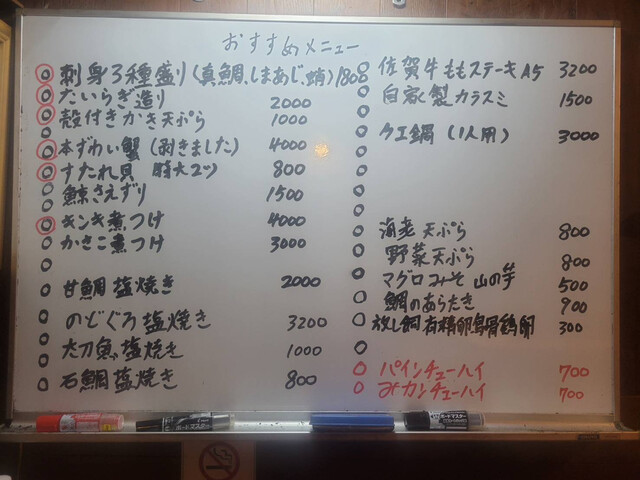 おすすめメニュー
刺身3種盛り(真鯛、しまあじ、蛸) 1800
たいらぎ造り 2000
殻付きかき天ぷら 1000
本ずわい蟹(剥きました) 4000
すだれ貝 特大2ツ 800
鯨さえずり 1500
キンキ煮つけ 4000
かさご煮つけ 3000
甘鯛塩焼き 2000
のどぐろ塩焼き 3200
太刀魚塩焼き 1000
石鯛塩焼き 800
佐賀牛ももステーキA5 3200
自家製カラスミ 1500
クエ鍋(1人用) 3000
海老天ぷら 800
野菜天ぷら 800
マグロみそ 山の芋 500
鯛のあらたき 900
放し飼有精卵烏骨鶏卵 300
パインチューハイ 700
みカンチューハイ 700
ボードマスター
ボードマスター